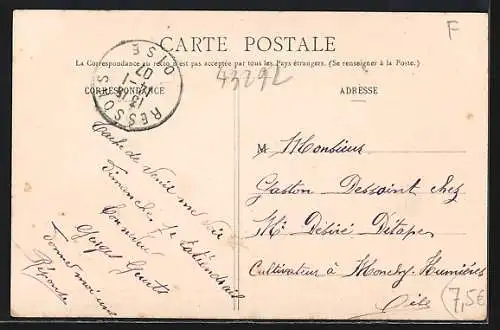 F
CARTE POSTALE
La Correspondance au recto n'est pas acceptée par tous les Pays étrangers. (Se renseigner à la Poste.)
43292
CORRESPONDANCE
ADRESSE
RESSONS
OISE
13
-1
07
Tache de venir me voir
Dimanche, je t'attendrai
Georges
Donne moi une
Réponse
M Monsieur
Gaston Dessoint chez
Mr Désiré Détape
Cultivateur à Monchy-Humières
Oise
7,5€